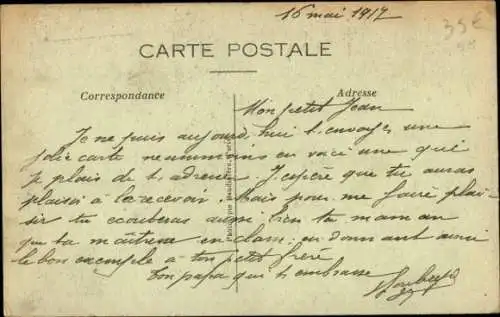 16 mai 1917
35€
CARTE POSTALE
Correspondance
Adresse
Mon petit Jean
Je ne puis aujourd'hui t'envoyer une
jolie carte neanmoins en voici une que
je plais de t'adresser. J'espère que tu auras
plaisir à la recevoir. Mais pour me faire plai-
sir tu ecouteras aussi bien ta maman
que ta maîtresse en classe en donnant ainsi
le bon exemple a ton petit frère
Ton papa qui t'embrasse